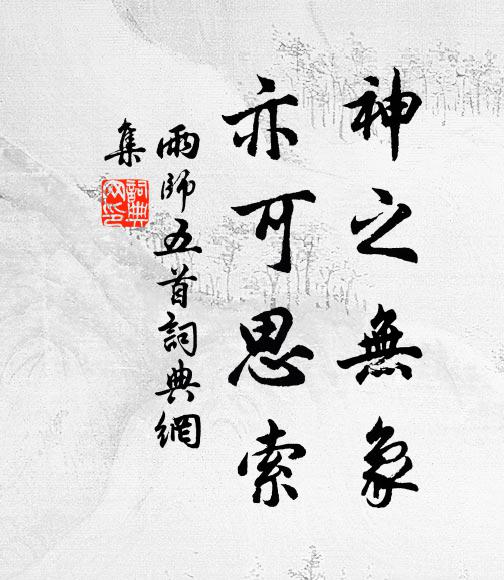 神之無象
亦可思索
雨師五首詞典網
集
詞典
网印